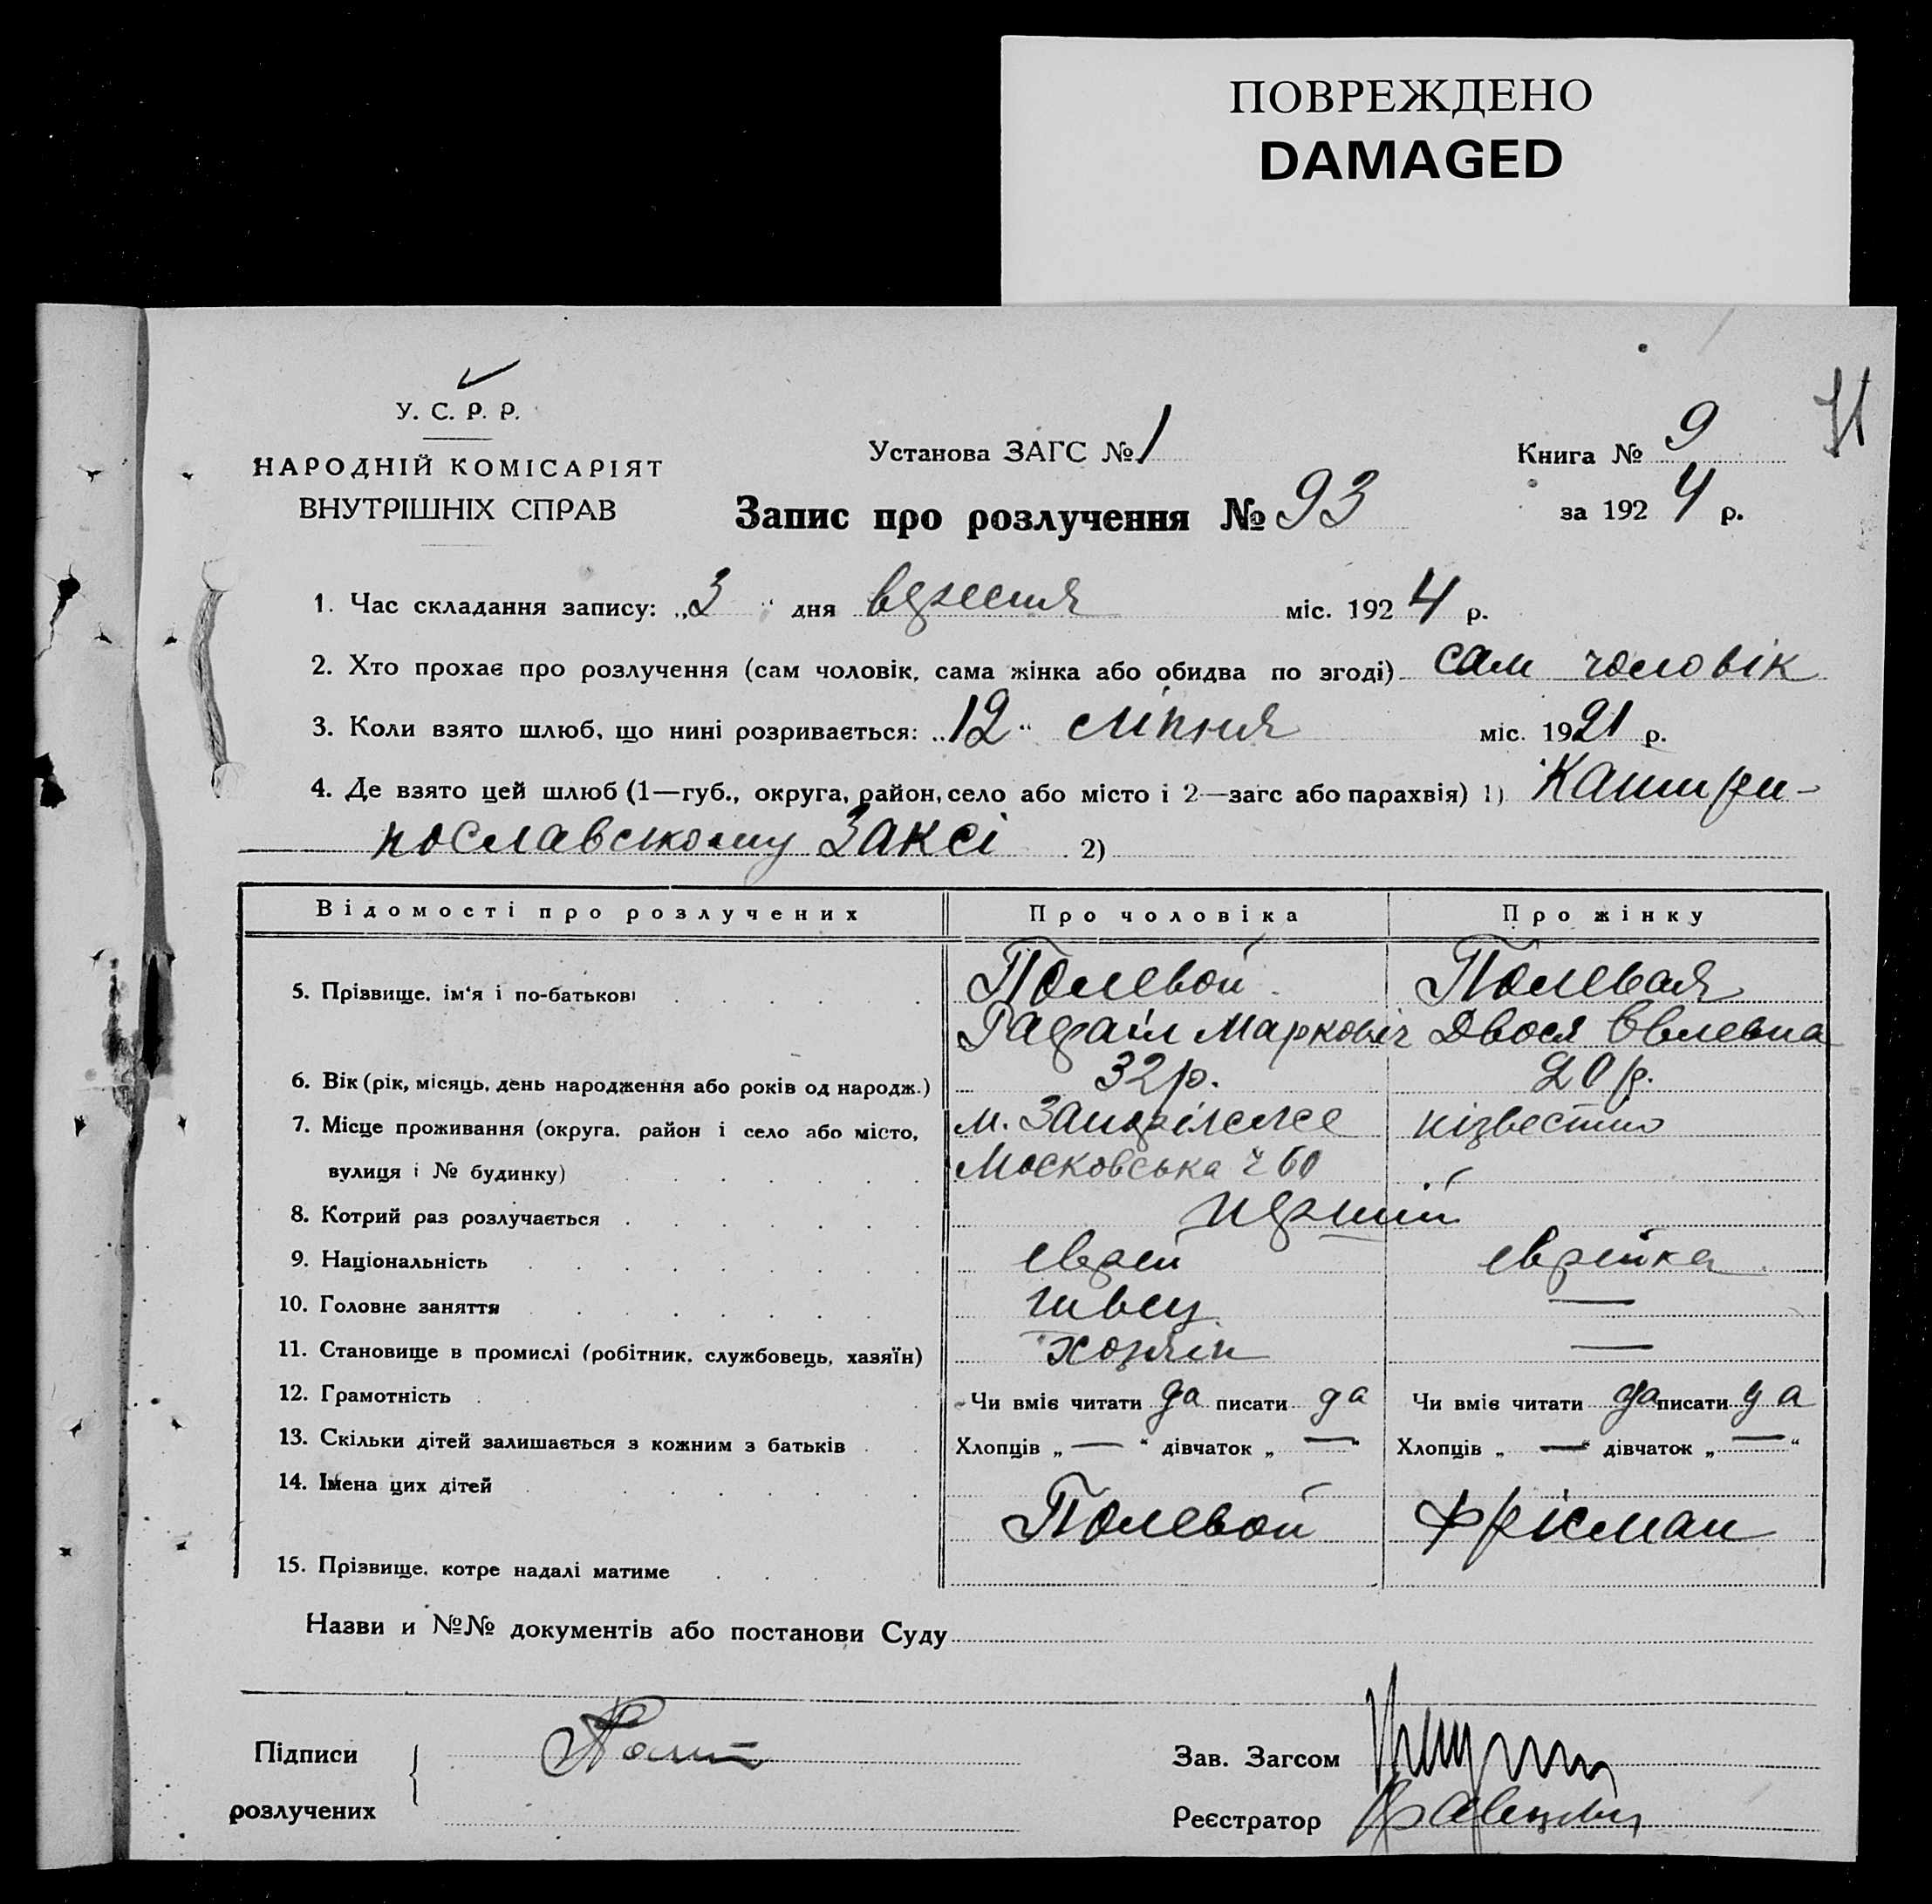 ПОВРЕЖДЕНО
DAMAGED
У. С. Р. Р.
НАРОДНІЙ КОМІСАРІЯТ
ВНУТРІШНІХ СПРАВ
Установа ЗАГС № 1
Книга № 9
за 1924 р.
Запис про розлучення № 93
1. Час складання запису: „3“ дня вересня міс. 1924 р.
2. Хто прохає про розлучення (сам чоловік, сама жінка або обидва по згоді) сам чоловік
3. Коли взято шлюб, що нині розривається: „12“ ліпня міс. 1921 р.
4. Де взято цей шлюб (1—губ., округа, район, село або місто і 2—загс або парахвія) 1)
пославському Заксі 2)
Відомості про розлучених Про чоловіка Про жінку
5. Прізвище, ім'я і по-батькові Полевой Полевая
Рафаіл Марковіч Двося
6. Вік (рік, місяць, день народження або років од народж.) 32 р. 20 р.
7. Місце проживання (округа, район і село або місто, м. нізвестно
вулиця і № будинку) Московська 60
8. Котрий раз розлучається перший
9. Національність еврей еврейка
10. Головне заняття швец —
11. Становище в промислі (робітник, службовець, хазяїн) хозяін —
12. Грамотність Чи вміє читати да писати да Чи вміє читати да писати да
13. Скільки дітей залишається з кожним з батьків Хлопців „—“ дівчаток „—“ Хлопців „—“ дівчаток „—“
14. Імена цих дітей
Полевой Фрісман
15. Прізвище, котре надалі матиме
Назви и №№ документів або постанови Суду
Підписи
розлучених
Зав. Загсом
Реєстратор